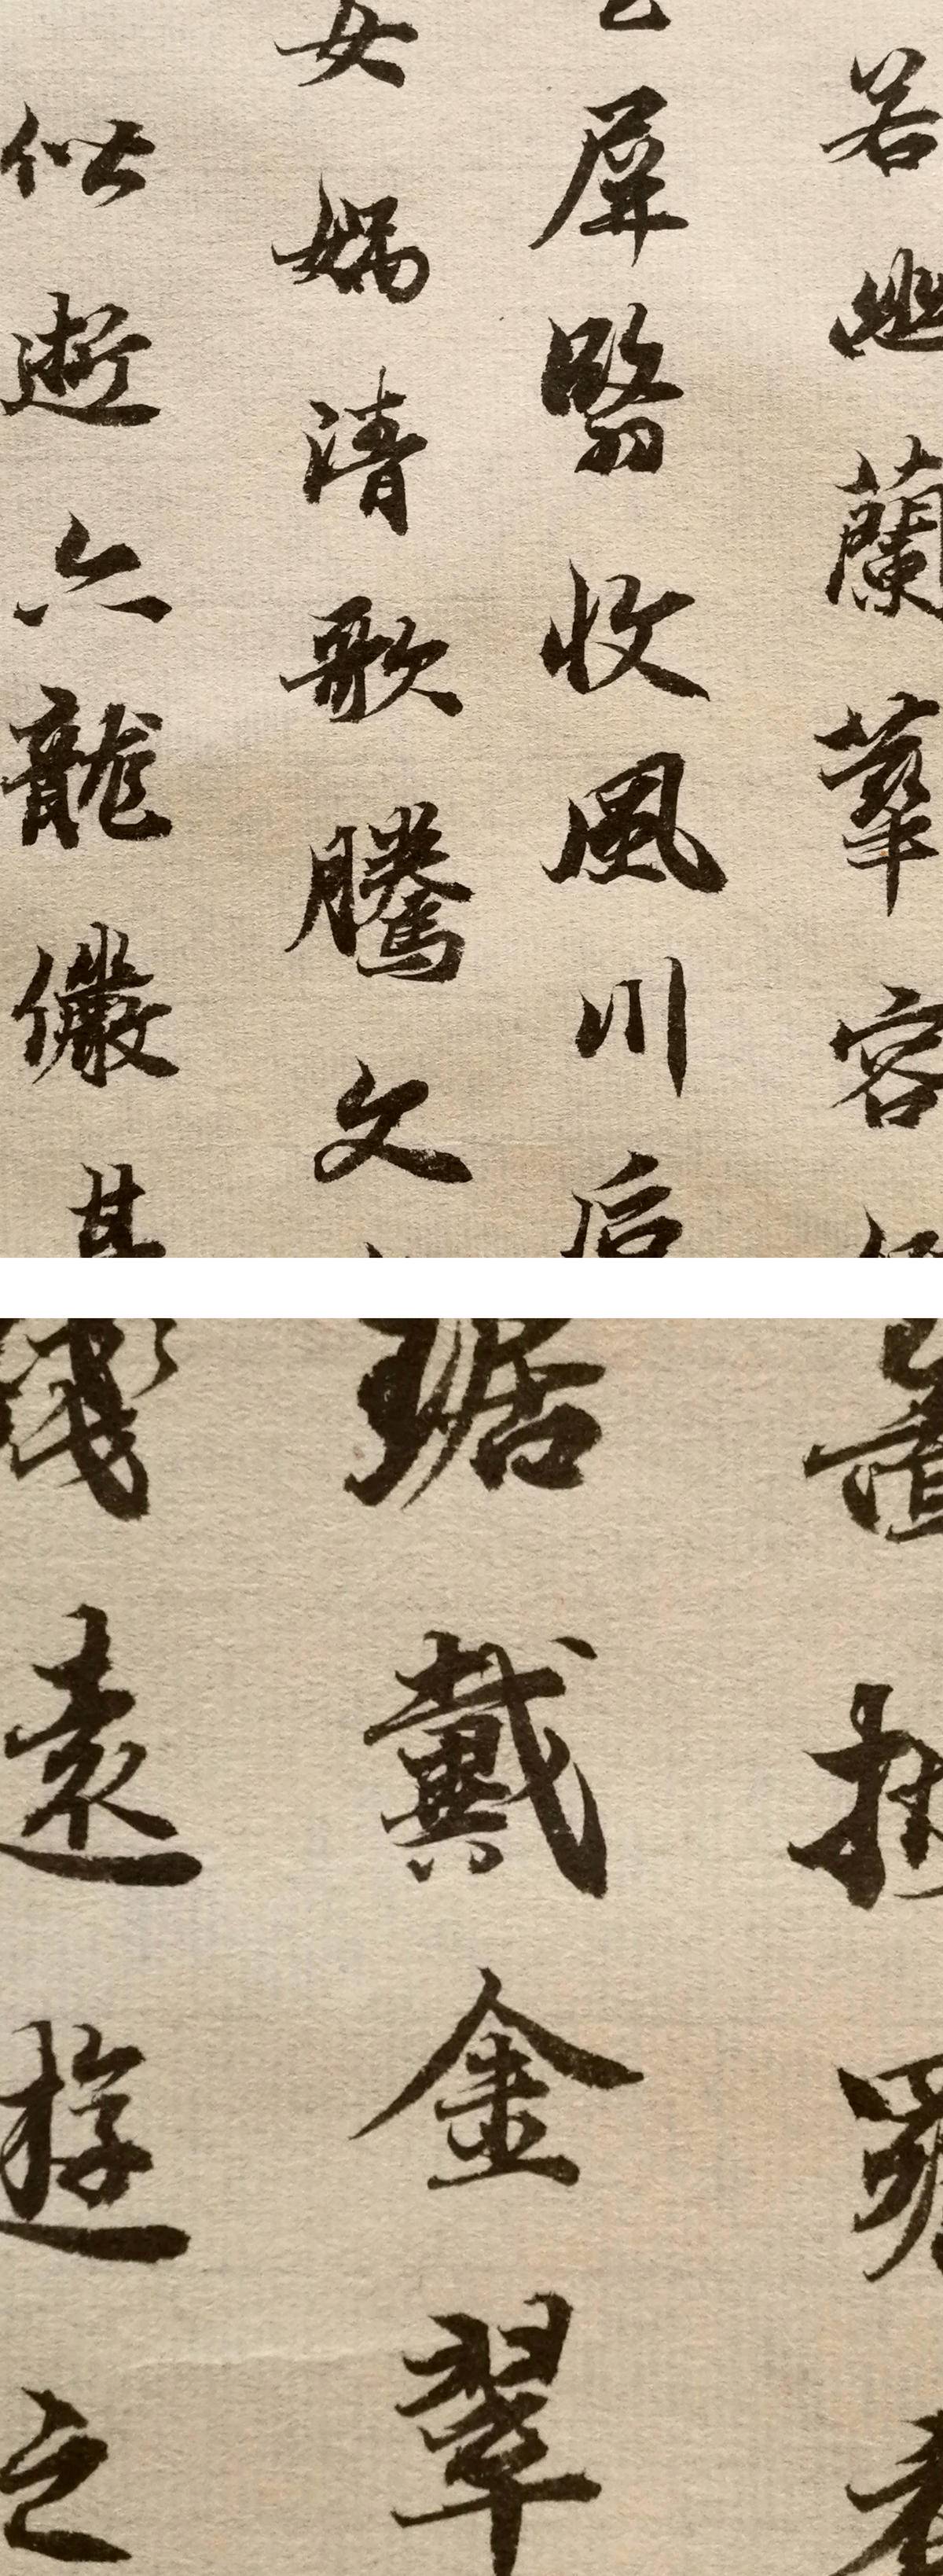 若幽蘭華容
屏翳收風川后
女媧清歌騰文
逝六龍儼其
披羅
琚戴金翠
踐遠遊之